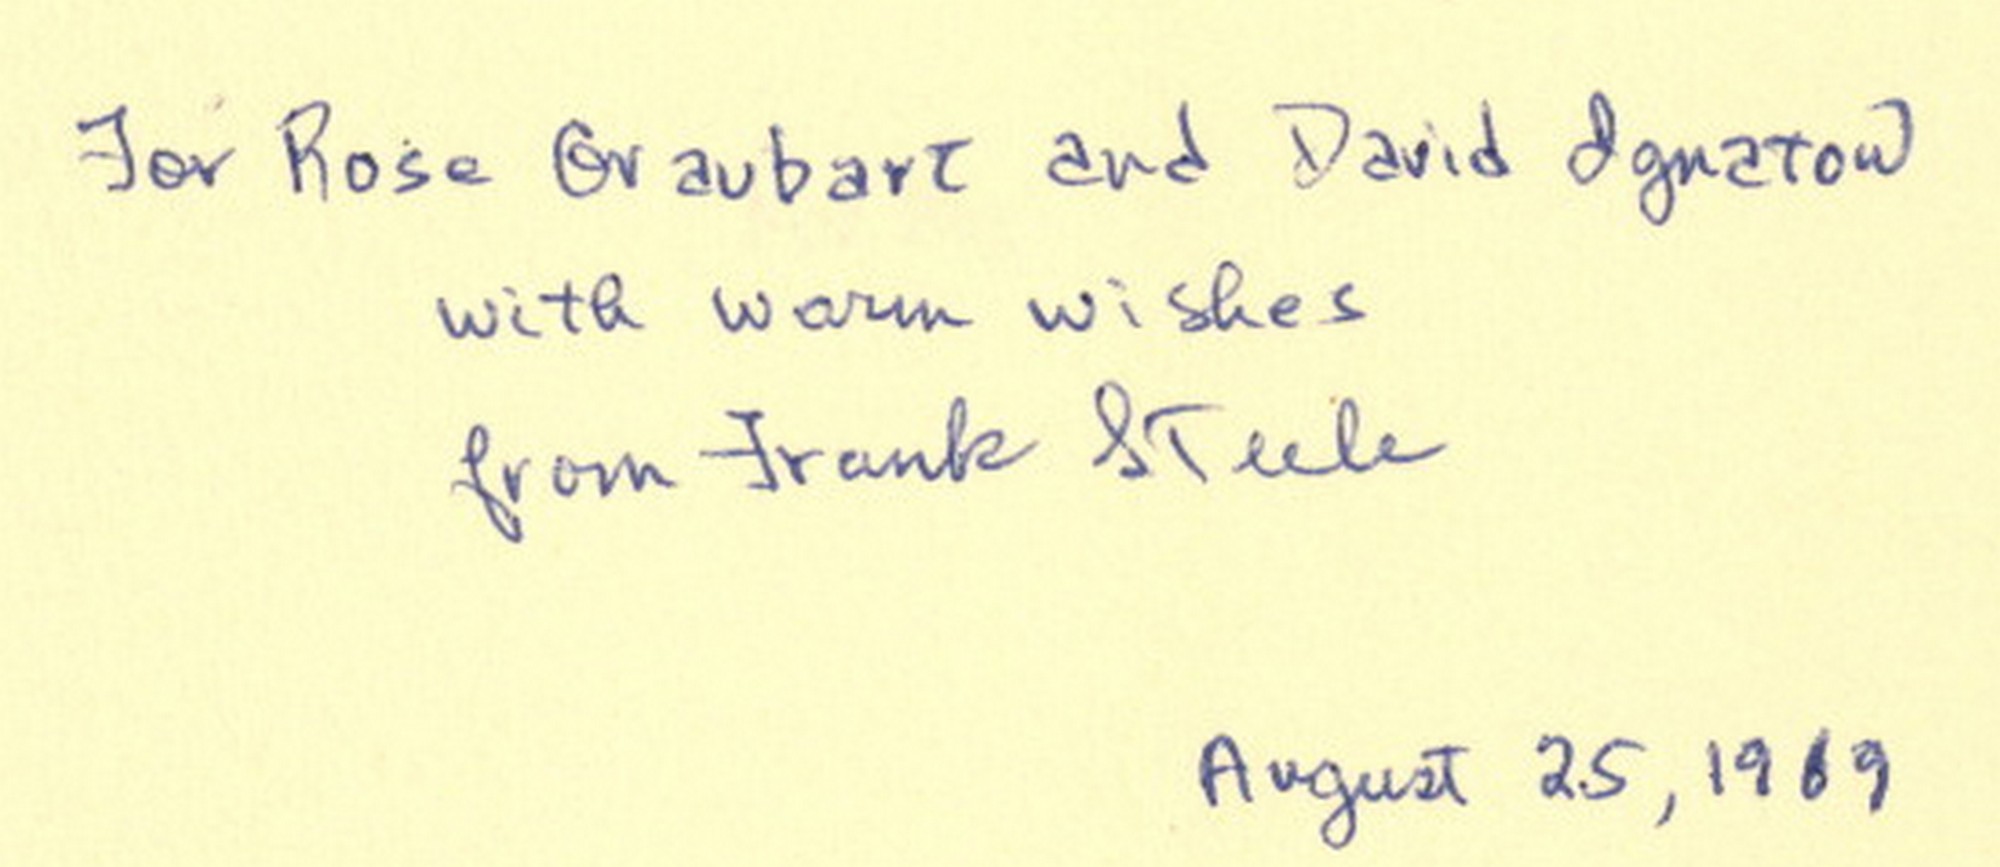 For Rose Graubart and David Ignatow
with warm wishes
from Frank Steele
August 25, 1969